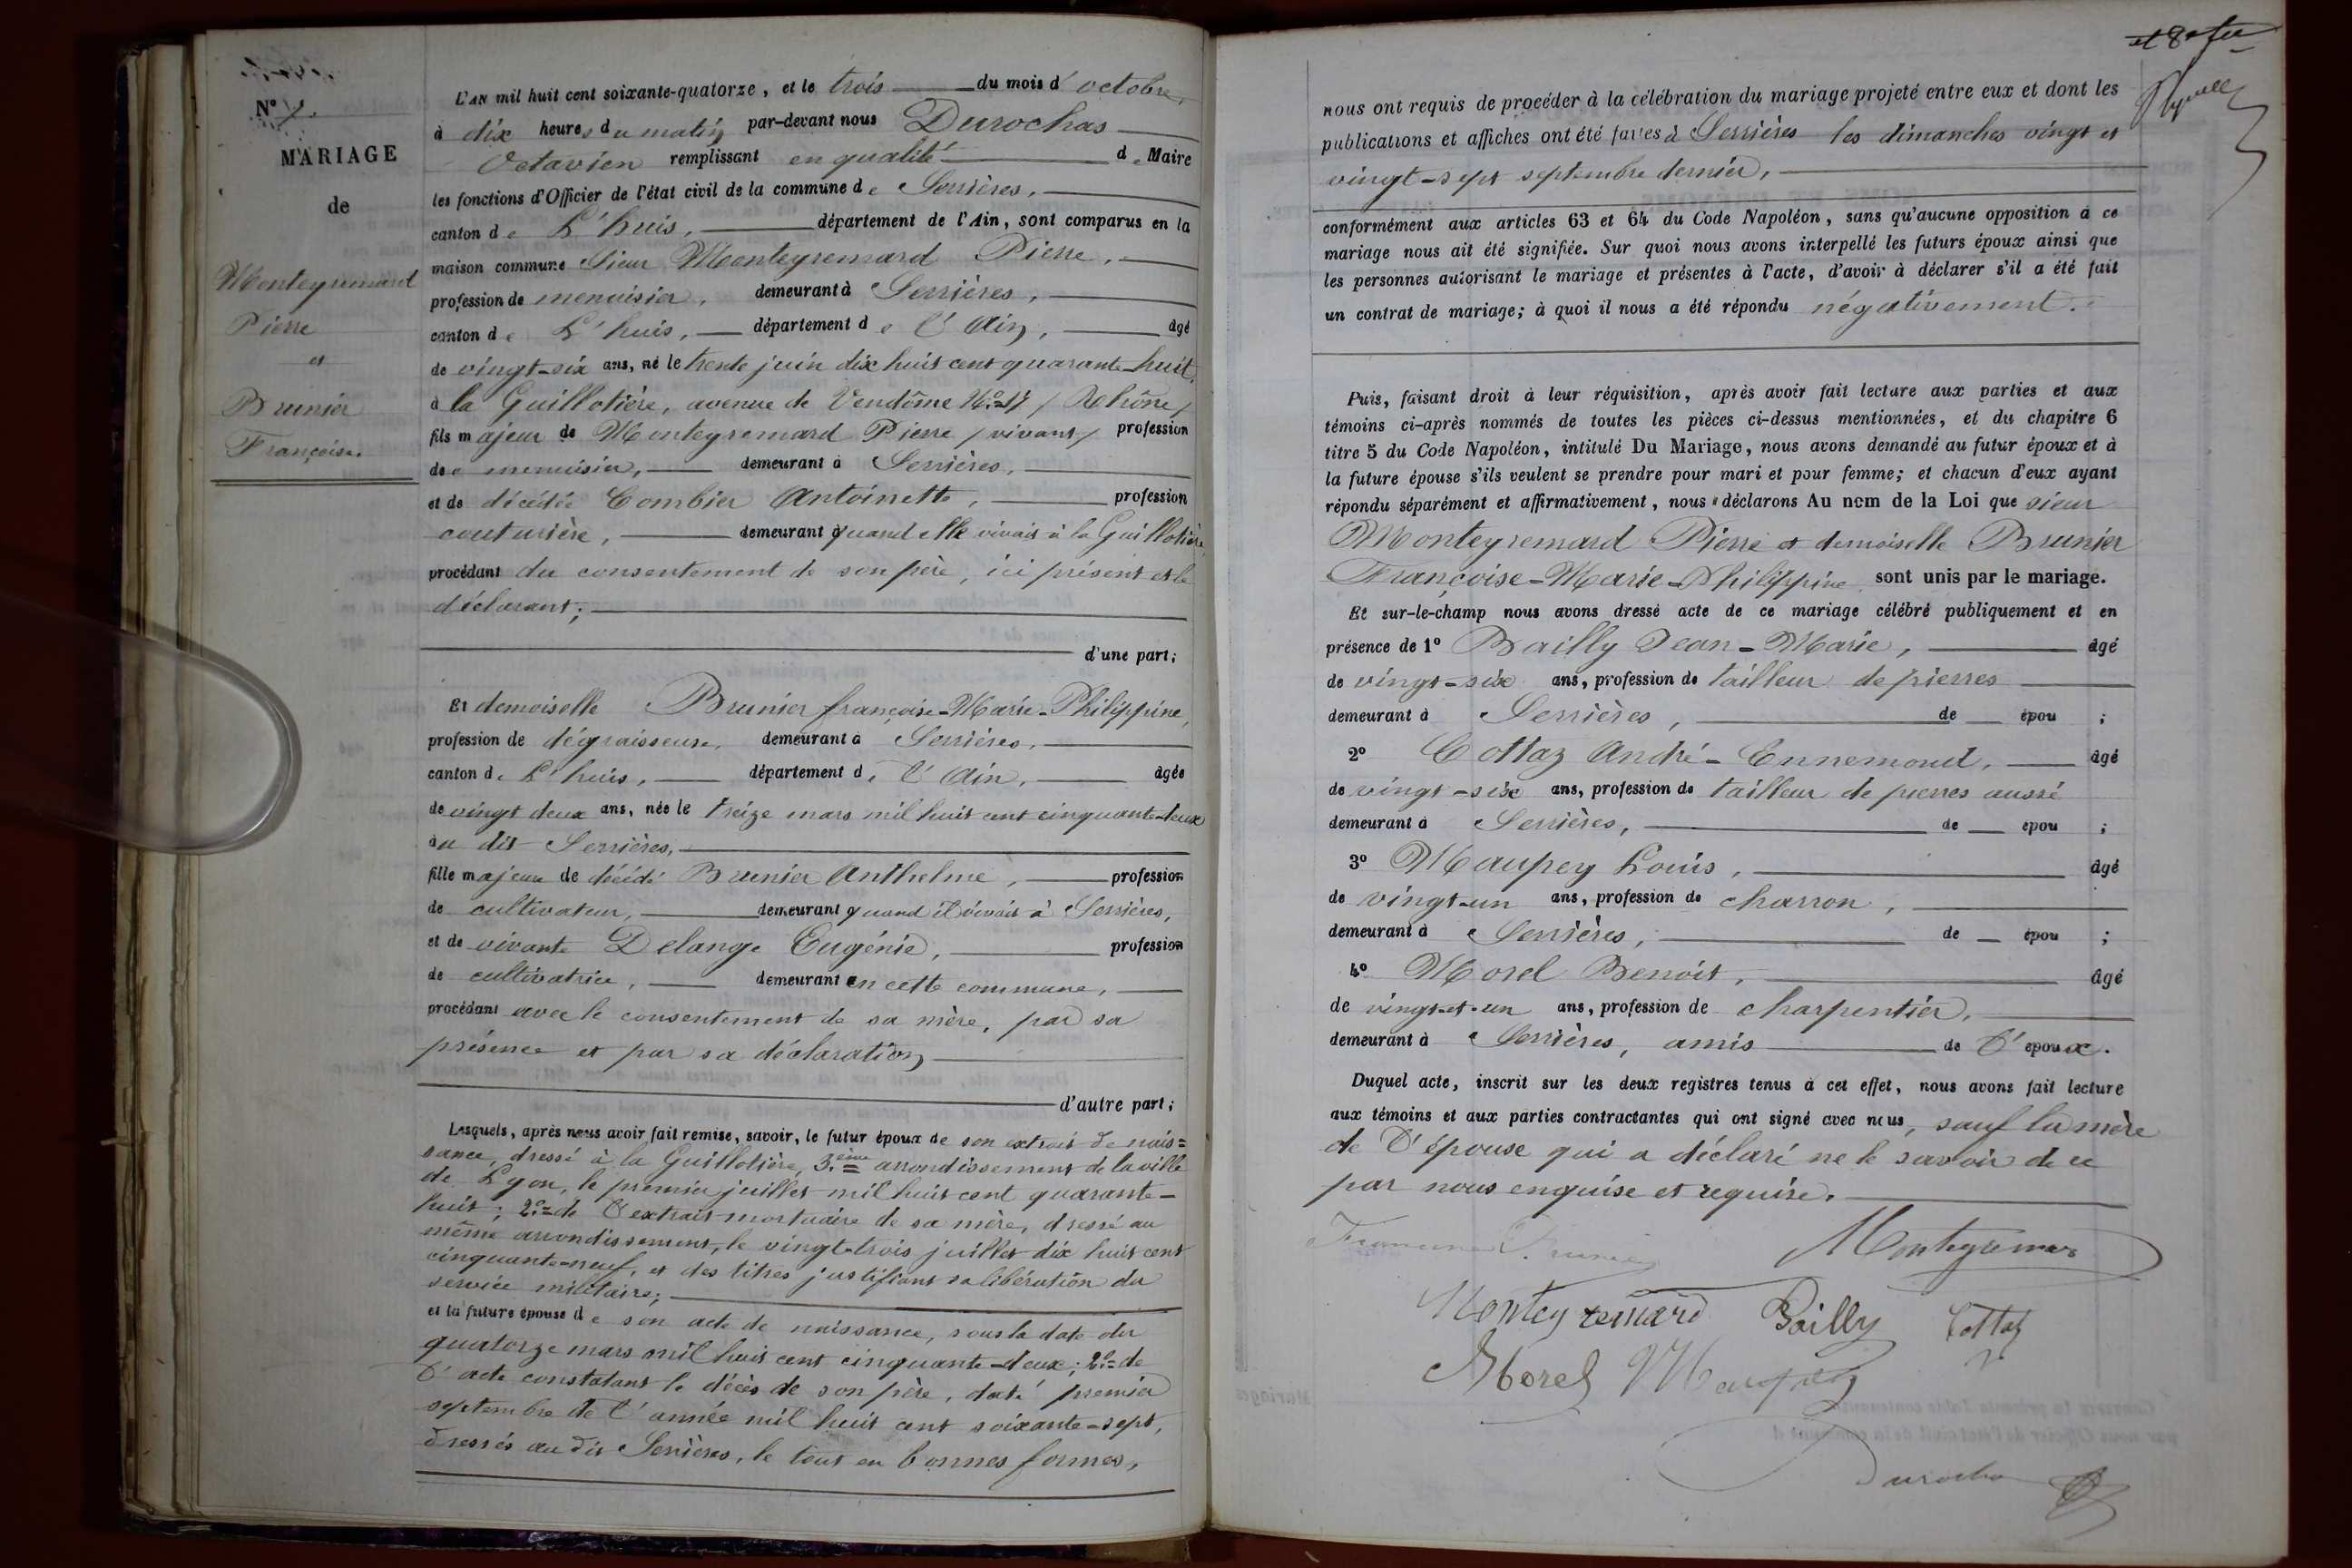 N° 7.
MARIAGE
de
Monteyremard
Pierre
et
Brunier
Françoise.
L'AN mil huit cent soixante-quatorze, et le trois du mois d'octobre,
à dix heures du matin par-devant nous Durochas
Octavien remplissant en qualité de Maire
les fonctions d'Officier de l'état civil de la commune de Serrières,
canton de L'huis, département de l'Ain, sont comparus en la
maison commune Sieur Monteyremard Pierre,
profession de menuisier, demeurant à Serrières,
canton de L'huis, département de l'Ain, âgé
de vingt-six ans, né le trente juin dix huit cent quarante-huit,
à la Guillotière, avenue de Vendôme N° 17 / Rhône /
fils majeur de Monteyremard Pierre / vivant / profession
de menuisier, demeurant à Serrières,
et de décédée Combier Antoinette, profession
couturière, demeurant quand elle vivait à la Guillotière,
procédant du consentement de son père, ici présent et le
déclarant;
d'une part;
Et demoiselle Brunier françoise-Marie-Philippine,
profession de dégraisseuse, demeurant à Serrières,
canton de L'huis, département de l'Ain, âgée
de vingt deux ans, née le treize mars mil huit cent cinquante-deux
au dit Serrières,
fille majeure de décédé Brunier Anthelme, profession
de cultivateur, demeurant quand il vivait à Serrières,
et de vivante Delange Eugénie, profession
de cultivatrice, demeurant en cette commune,
procédant avec le consentement de sa mère, par sa
présence et par sa déclaration
d'autre part;
Lesquels, après nous avoir fait remise, savoir, le futur époux de son extrait de nais=
sance, dressé à la Guillotière, 3.ème arrondissement de la ville
de Lyon, le premier juillet mil huit cent quarante-
huit; 2° de l'extrait mortuaire de sa mère, dressé au
même arrondissement, le vingt-trois juillet dix huit cent
cinquante-neuf, et des titres justifiant sa libération du
service militaire;
et la future épouse de son acte de naissance, sous la date du
quatorze mars mil huit cent cinquante-deux; 2° de
l'acte constatant le décès de son père, daté premier
septembre de l'année mil huit cent soixante-sept,
dressés au dit Serrières, le tout en bonnes formes,
nous ont requis de procéder à la célébration du mariage projeté entre eux et dont les
publications et affiches ont été faites à Serrières les dimanches vingt et
vingt-sept septembre dernier,
conformément aux articles 63 et 64 du Code Napoléon, sans qu'aucune opposition à ce
mariage nous ait été signifiée. Sur quoi nous avons interpellé les futurs époux ainsi que
les personnes autorisant le mariage et présentes à l'acte, d'avoir à déclarer s'il a été fait
un contrat de mariage; à quoi il nous a été répondu négativement.
Puis, faisant droit à leur réquisition, après avoir fait lecture aux parties et aux
témoins ci-après nommés de toutes les pièces ci-dessus mentionnées, et du chapitre 6
titre 5 du Code Napoléon, intitulé Du Mariage, nous avons demandé au futur époux et à
la future épouse s'ils veulent se prendre pour mari et pour femme; et chacun d'eux ayant
répondu séparément et affirmativement, nous déclarons Au nom de la Loi que sieur
Monteyremard Pierre et demoiselle Brunier
Françoise-Marie-Philippine sont unis par le mariage.
Et sur-le-champ nous avons dressé acte de ce mariage célébré publiquement et en
présence de 1° Bailly Jean-Marie, âgé
de vingt-six ans, profession de tailleur de pierres
demeurant à Serrières, de épou ;
2° Cottaz André-Ennemond, âgé
de vingt-six ans, profession de tailleur de pierres aussi
demeurant à Serrières, de épou ;
3° Maupey Louis, âgé
de vingt-un ans, profession de charron,
demeurant à Serrières, de épou ;
4° Morel Benoit, âgé
de vingt-et-un ans, profession de charpentier,
demeurant à Serrières, amis de l'époux.
Duquel acte, inscrit sur les deux registres tenus à cet effet, nous avons fait lecture
aux témoins et aux parties contractantes qui ont signé avec nous, sauf la mère
de l'épouse qui a déclaré ne le savoir de ce
par nous enquise et requise.
Brunier Monteyremard
Monteyremard Bailly Cottaz
Morel Maupey
Durochas